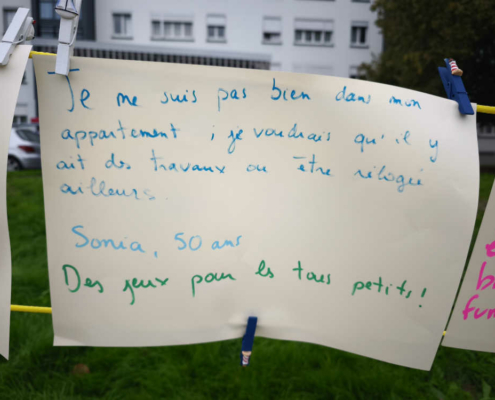 Je me suis pas bien dans mon
appartement ; je voudrais qu'il y
ait des travaux ou être relogée
ailleurs.
Sonia, 50 ans
Des jeux pour les tous petits !